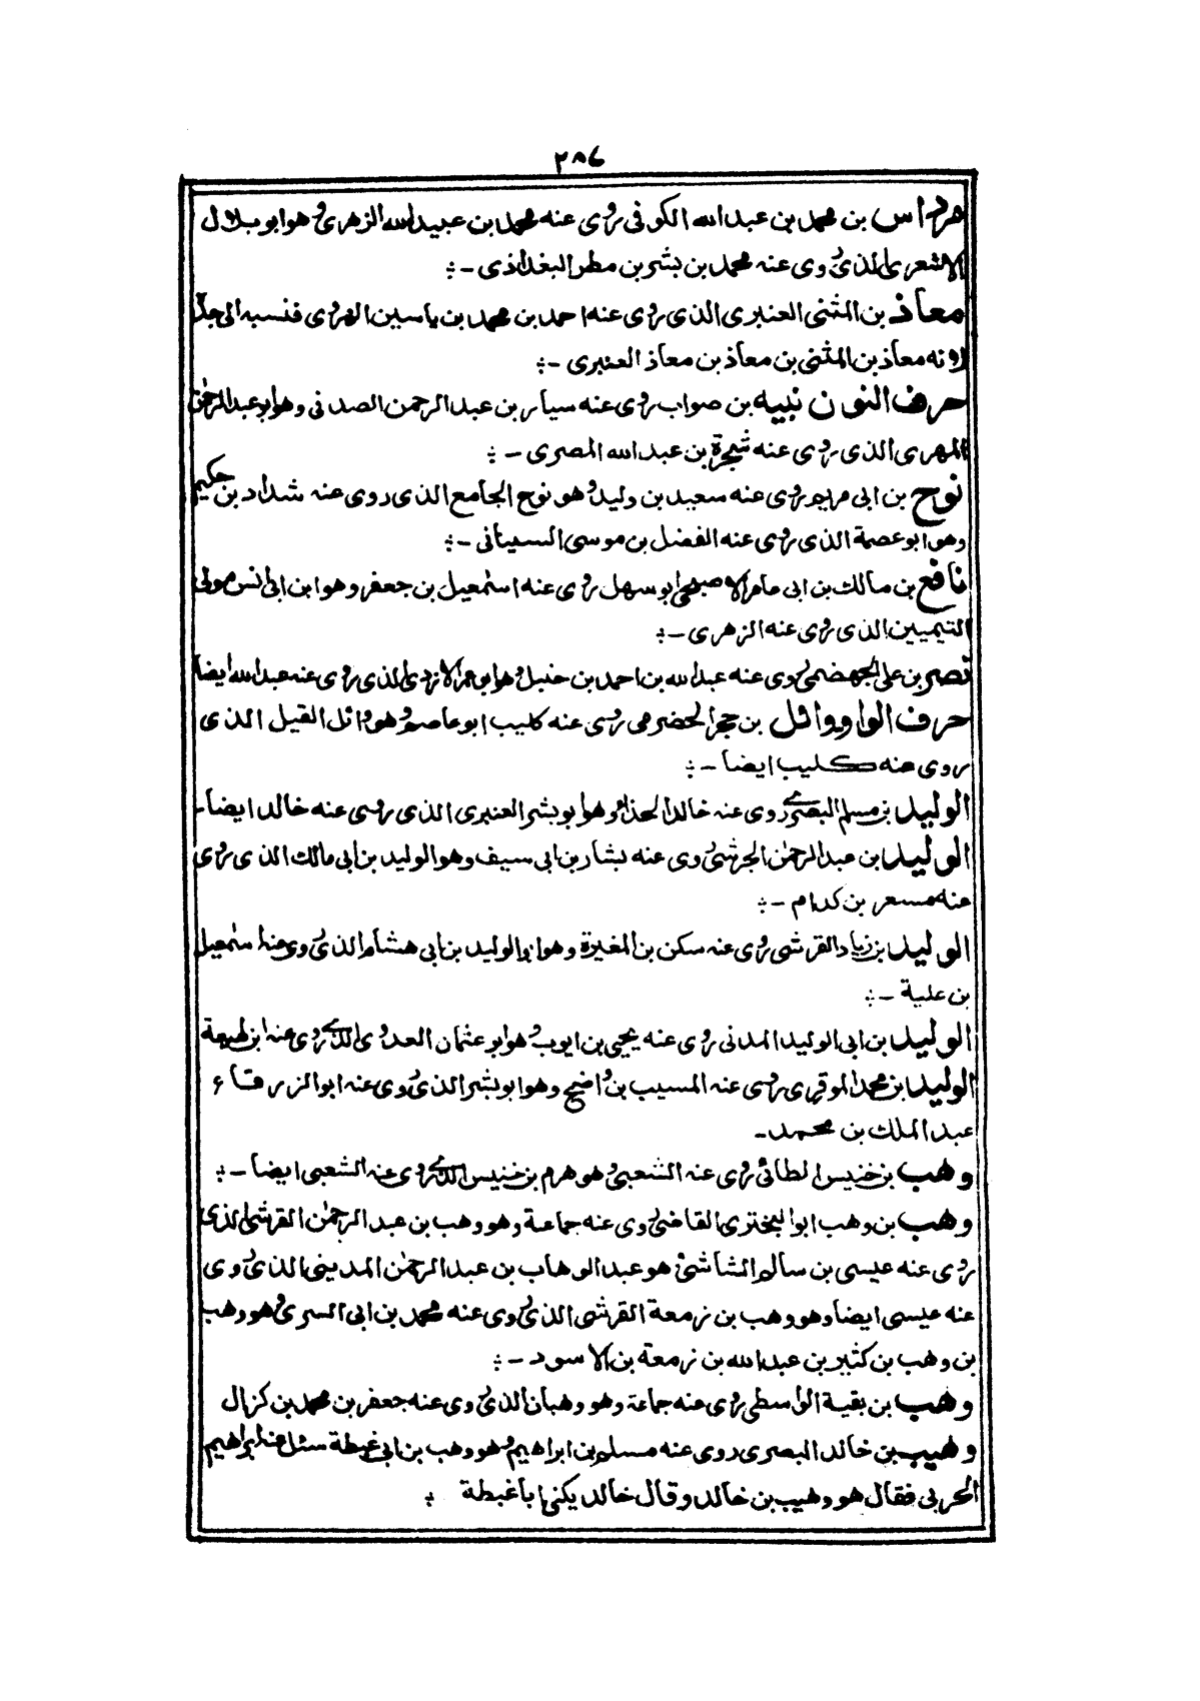 ٢٨٦
مرداس بن محمد بن عبدالله الكوفى روى عنه محمد بن عبيدالله الزهرى وهو ابو بلال
الاشعرى الذى روى عنه محمد بن بشر بن مطر البغداذى -:
معاذ بن المثنى العنبرى الذى روى عنه احمد بن محمد بن ياسين الهروى فنسبه الى جده
لانه معاذ بن المثنى بن معاذ بن معاذ العنبرى -:
حرف النون نبيه بن صواب روى عنه سيار بن عبد الرحمن الصدفى وهو ابو عبد الرحمن
المهرى الذى روى عنه شجرة بن عبد الله المصرى -:
نوح بن ابى مريم روى عنه سعيد بن وليد وهو نوح الجامع الذى روى عنه شداد بن حكيم
وهو ابو عصمة الذى روى عنه الفضل بن موسى السينانى -:
نافع بن مالك بن ابى عامر الاصبحى ابو سهل روى عنه اسمعيل بن جعفر وهو ابن ابى انس مولى
التيميين الذى روى عنه الزهرى -:
نصر بن على الجهضمى روى عنه عبد الله بن احمد بن حنبل وهو ابو عمر الازدى الذى روى عنه عبد الله ايضا
حرف الواو وائل بن حجر الحضرمى روى عنه كليب ابو عاصم وهو وائل القيل الذى
روى عنه كليب ايضا -:
الوليد بن مسلم البصرى روى عنه خالد الحذاء وهو ابو بشر العنبرى الذى روى عنه خالد ايضا -
الوليد بن عبد الرحمن الجرشى روى عنه بشار بن ابى سيف وهو الوليد بن ابى مالك الذى روى
عنه مسعر بن كدام -:
الوليد بن زياد القرشى روى عنه سكن بن المغيرة وهو ابو الوليد بن ابى هشام الذى روى عنه اسمعيل
بن علية -:
الوليد بن ابى الوليد المدنى روى عنه يحيى بن ايوب وهو ابو عثمان العدوى الذى روى عنه ابن لهيعة
الوليد بن محمد الموقرى روى عنه المسيب بن واضح وهو ابو بشر الذى روى عنه ابو الزرقاء
عبد الملك بن محمد -
وهب بن خنيس الطائى روى عنه الشعبى وهو هرم بن خنيس الذى روى عنه الشعبى ايضا -:
وهب بن وهب ابو البخترى القاضى روى عنه جماعة وهو وهب بن عبد الرحمن القرشى الذى
روى عنه عيسى بن سالم الشاشى وهو عبد الوهاب بن عبد الرحمن المدينى الذى روى
عنه عيسى ايضا وهو وهب بن زمعة القرشى الذى روى عنه محمد بن ابى السرى وهو وهب
بن وهب بن كثير بن عبد الله بن زمعة بن الاسود -:
وهب بن بقية الواسطى روى عنه جماعة وهو وهبان الذى روى عنه جعفر بن محمد بن كزال
وهيب بن خالد البصرى روى عنه مسلم بن ابراهيم وهو وهب بن ابى غبطة سئل عنه ابراهيم
الحربى فقال هو وهيب بن خالد وقال خالد يكنى ابا غبطة :